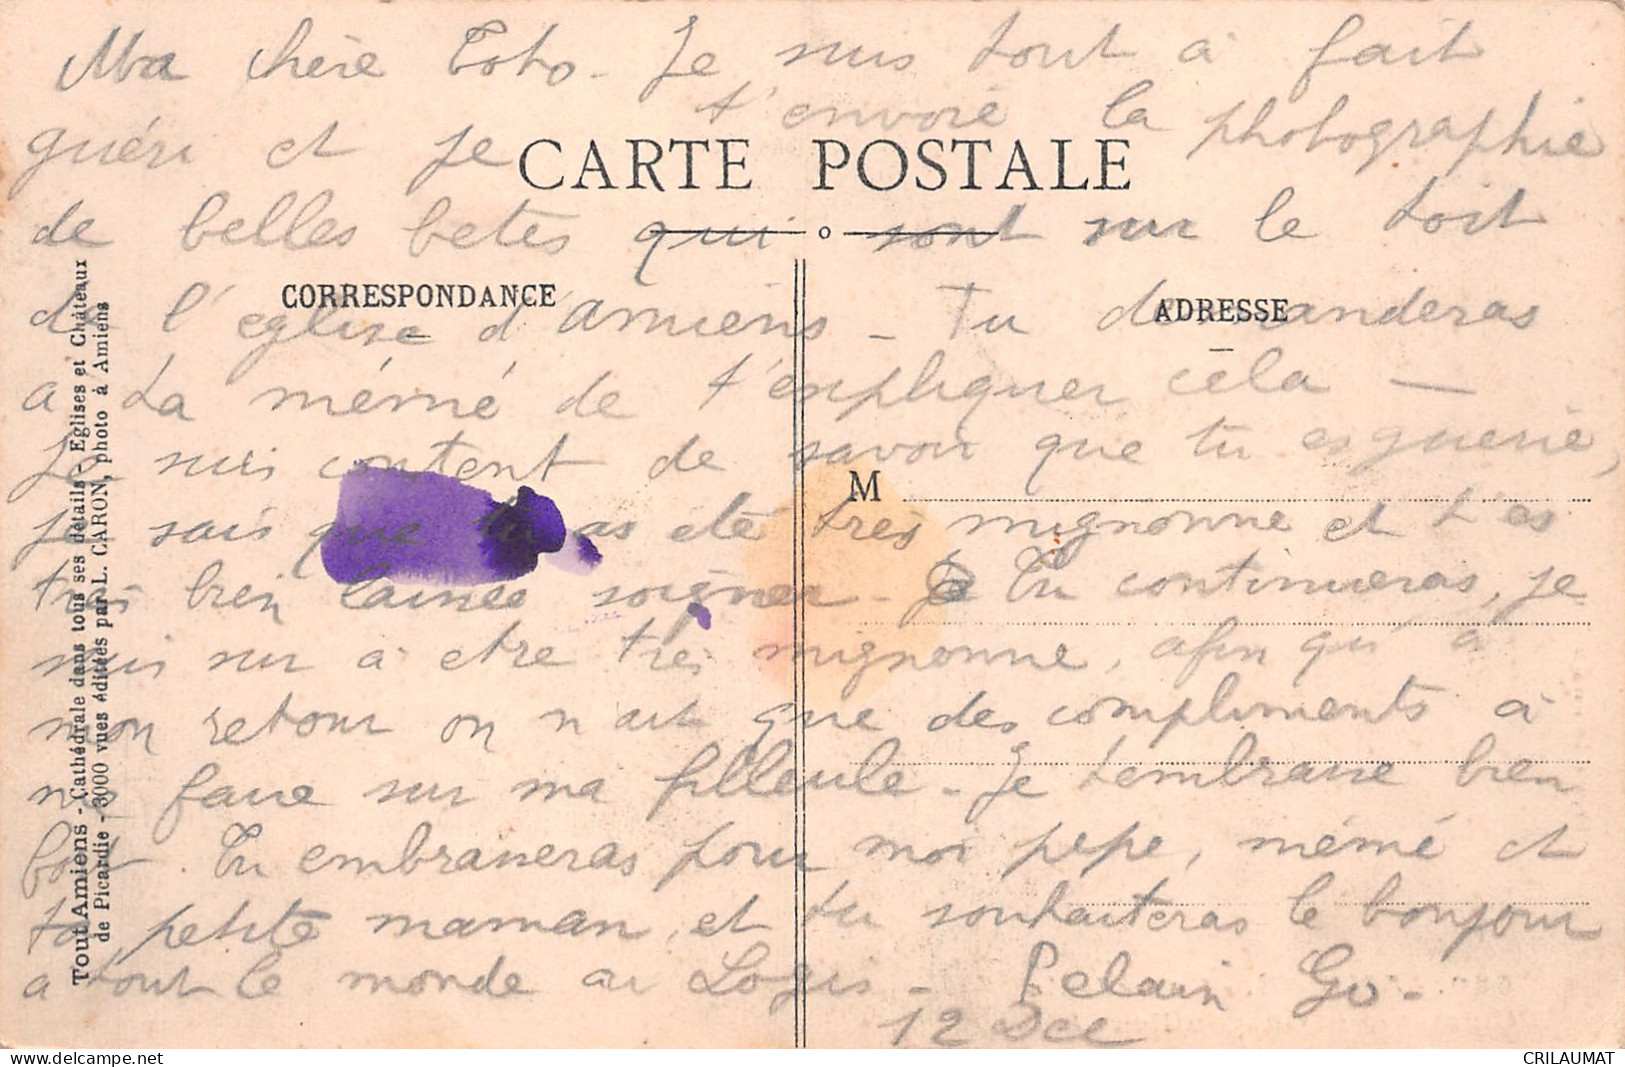 Ma chère Toto - Je suis tout à fait
guéri et je t'envoie la photographie
CARTE POSTALE
de belles betes qui sont sur le toit
CORRESPONDANCE
ADRESSE
de l'eglise d'amiens - Tu demanderas
a la mémé de t'expliquer cela -
Je suis content de savoir que tu es guerie,
M
je sais que tu as été très mignonne et t'es
très bien laissée soigner - Tu continueras, je
suis sur à etre très mignonne, afin qu'à
mon retour on n'ait que des compliments à
me faire sur ma filleule - Je t'embrasse bien
fort. Tu embrasseras pour moi pépé, mémé et
ta petite maman, et tu souhaiteras le bonjour
a tout le monde au Logis -
12 Dec
Tout Amiens - Cathédrale dans tous ses détails - Eglises et Châteaux
de Picardie - 3000 vues éditées par L. CARON, photo à Amiens
CRILAUMAT